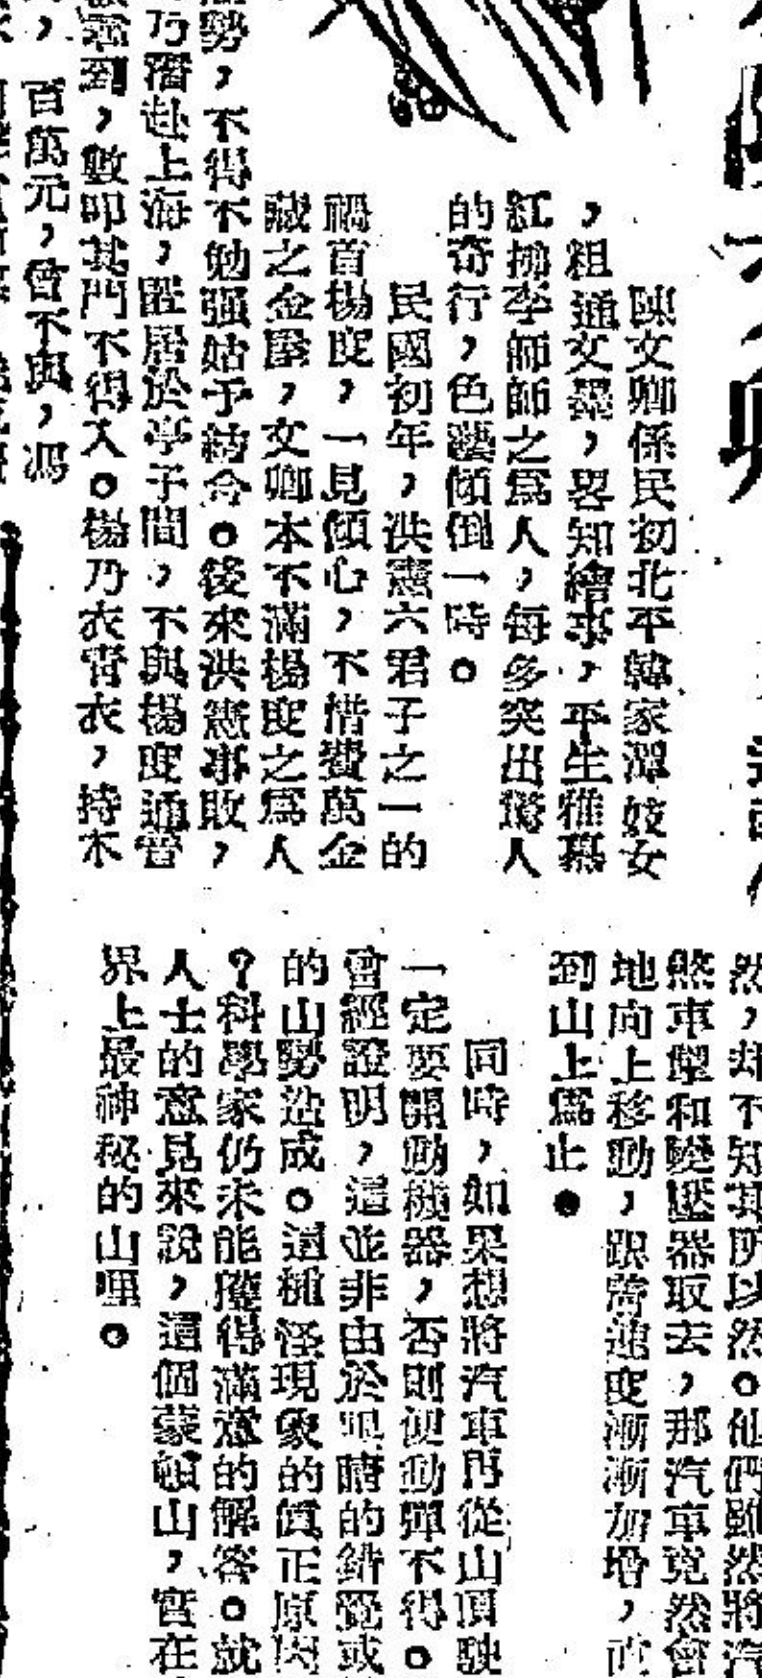 陳文卿係民初北平韓家潭妓女
，粗通文墨，畧知繪事，平生雅慕
紅拂李師師之爲人，每多突出驚人
的奇行，色藝傾倒一時。
民國初年，洪憲六君子之一的
禍首楊度，一見傾心，不惜費萬金
藏之金屋，文卿本不滿楊度之爲人
勢，不得不勉强姑予結合。後來洪憲事敗，
乃潛赴上海，匿居於亭子間，不與楊度通音
到，數叩其門不得入。楊乃衣青衣，持木
百萬元，曾不與，馮
然，却不知其所以然。他們雖然將汽
煞車掣和變壓器取去，那汽車竟然會
地向上移動，跟着速度漸漸加增，直
到山上爲止●
同時，如果想將汽車再從山頂駛
一定要開動機器，否則便動彈不得。
曾經證明，這並非由於眼睛的錯覺或
的山勢造成。這種怪現象的眞正原因
？科學家仍未能獲得滿意的解答。就
人士的意見來說，這個蒙頓山，實在
界上最神秘的山哩。